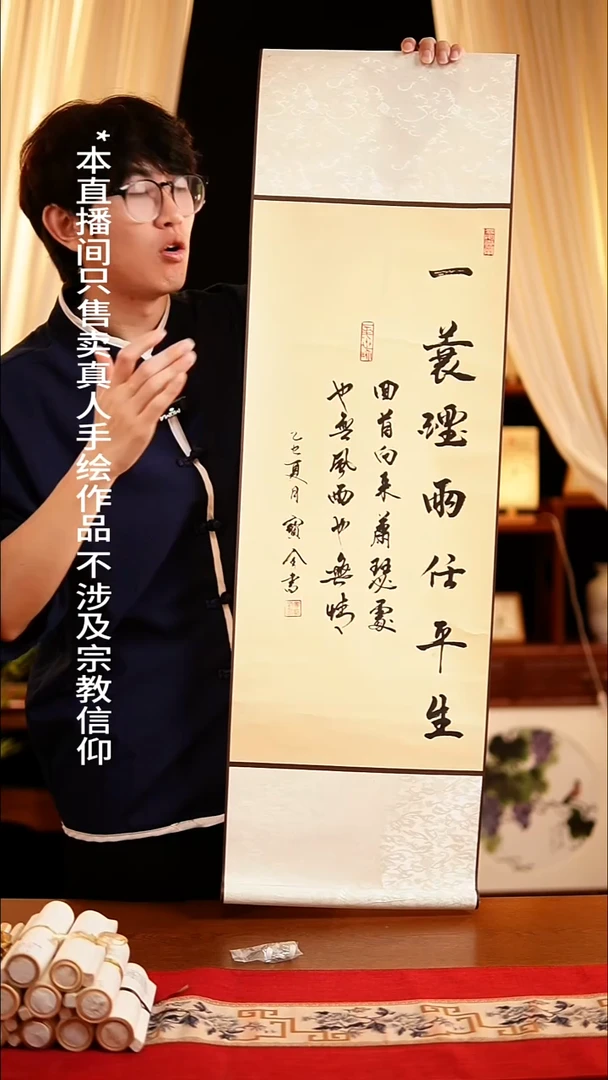 *本直播间只售卖真人手绘作品 不涉及宗教信仰
一蓑煙雨任平生
回首向来蕭瑟處
也無風雨也無晴
乙巳夏月 寶書